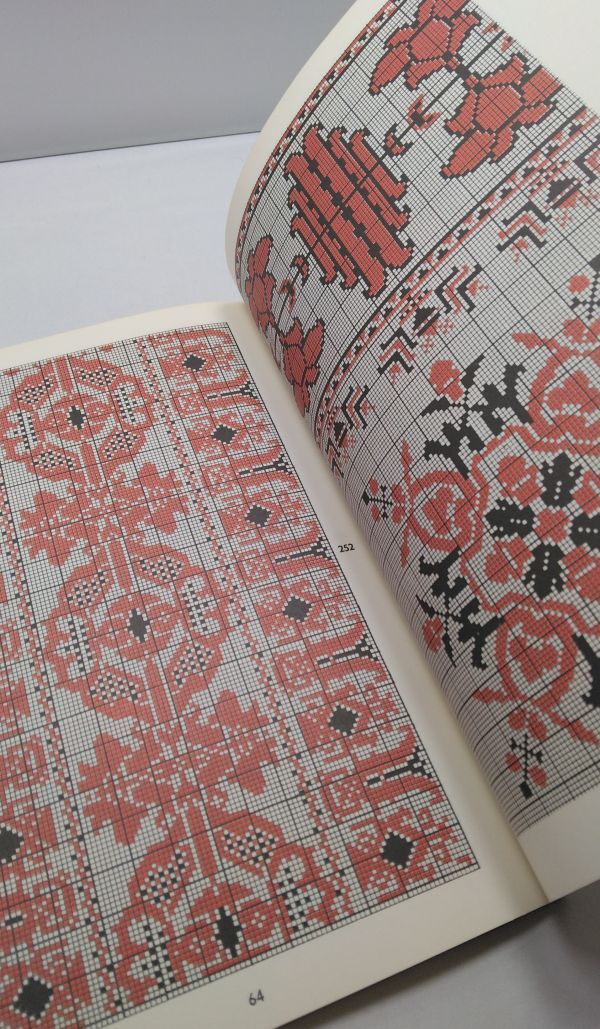 252
64